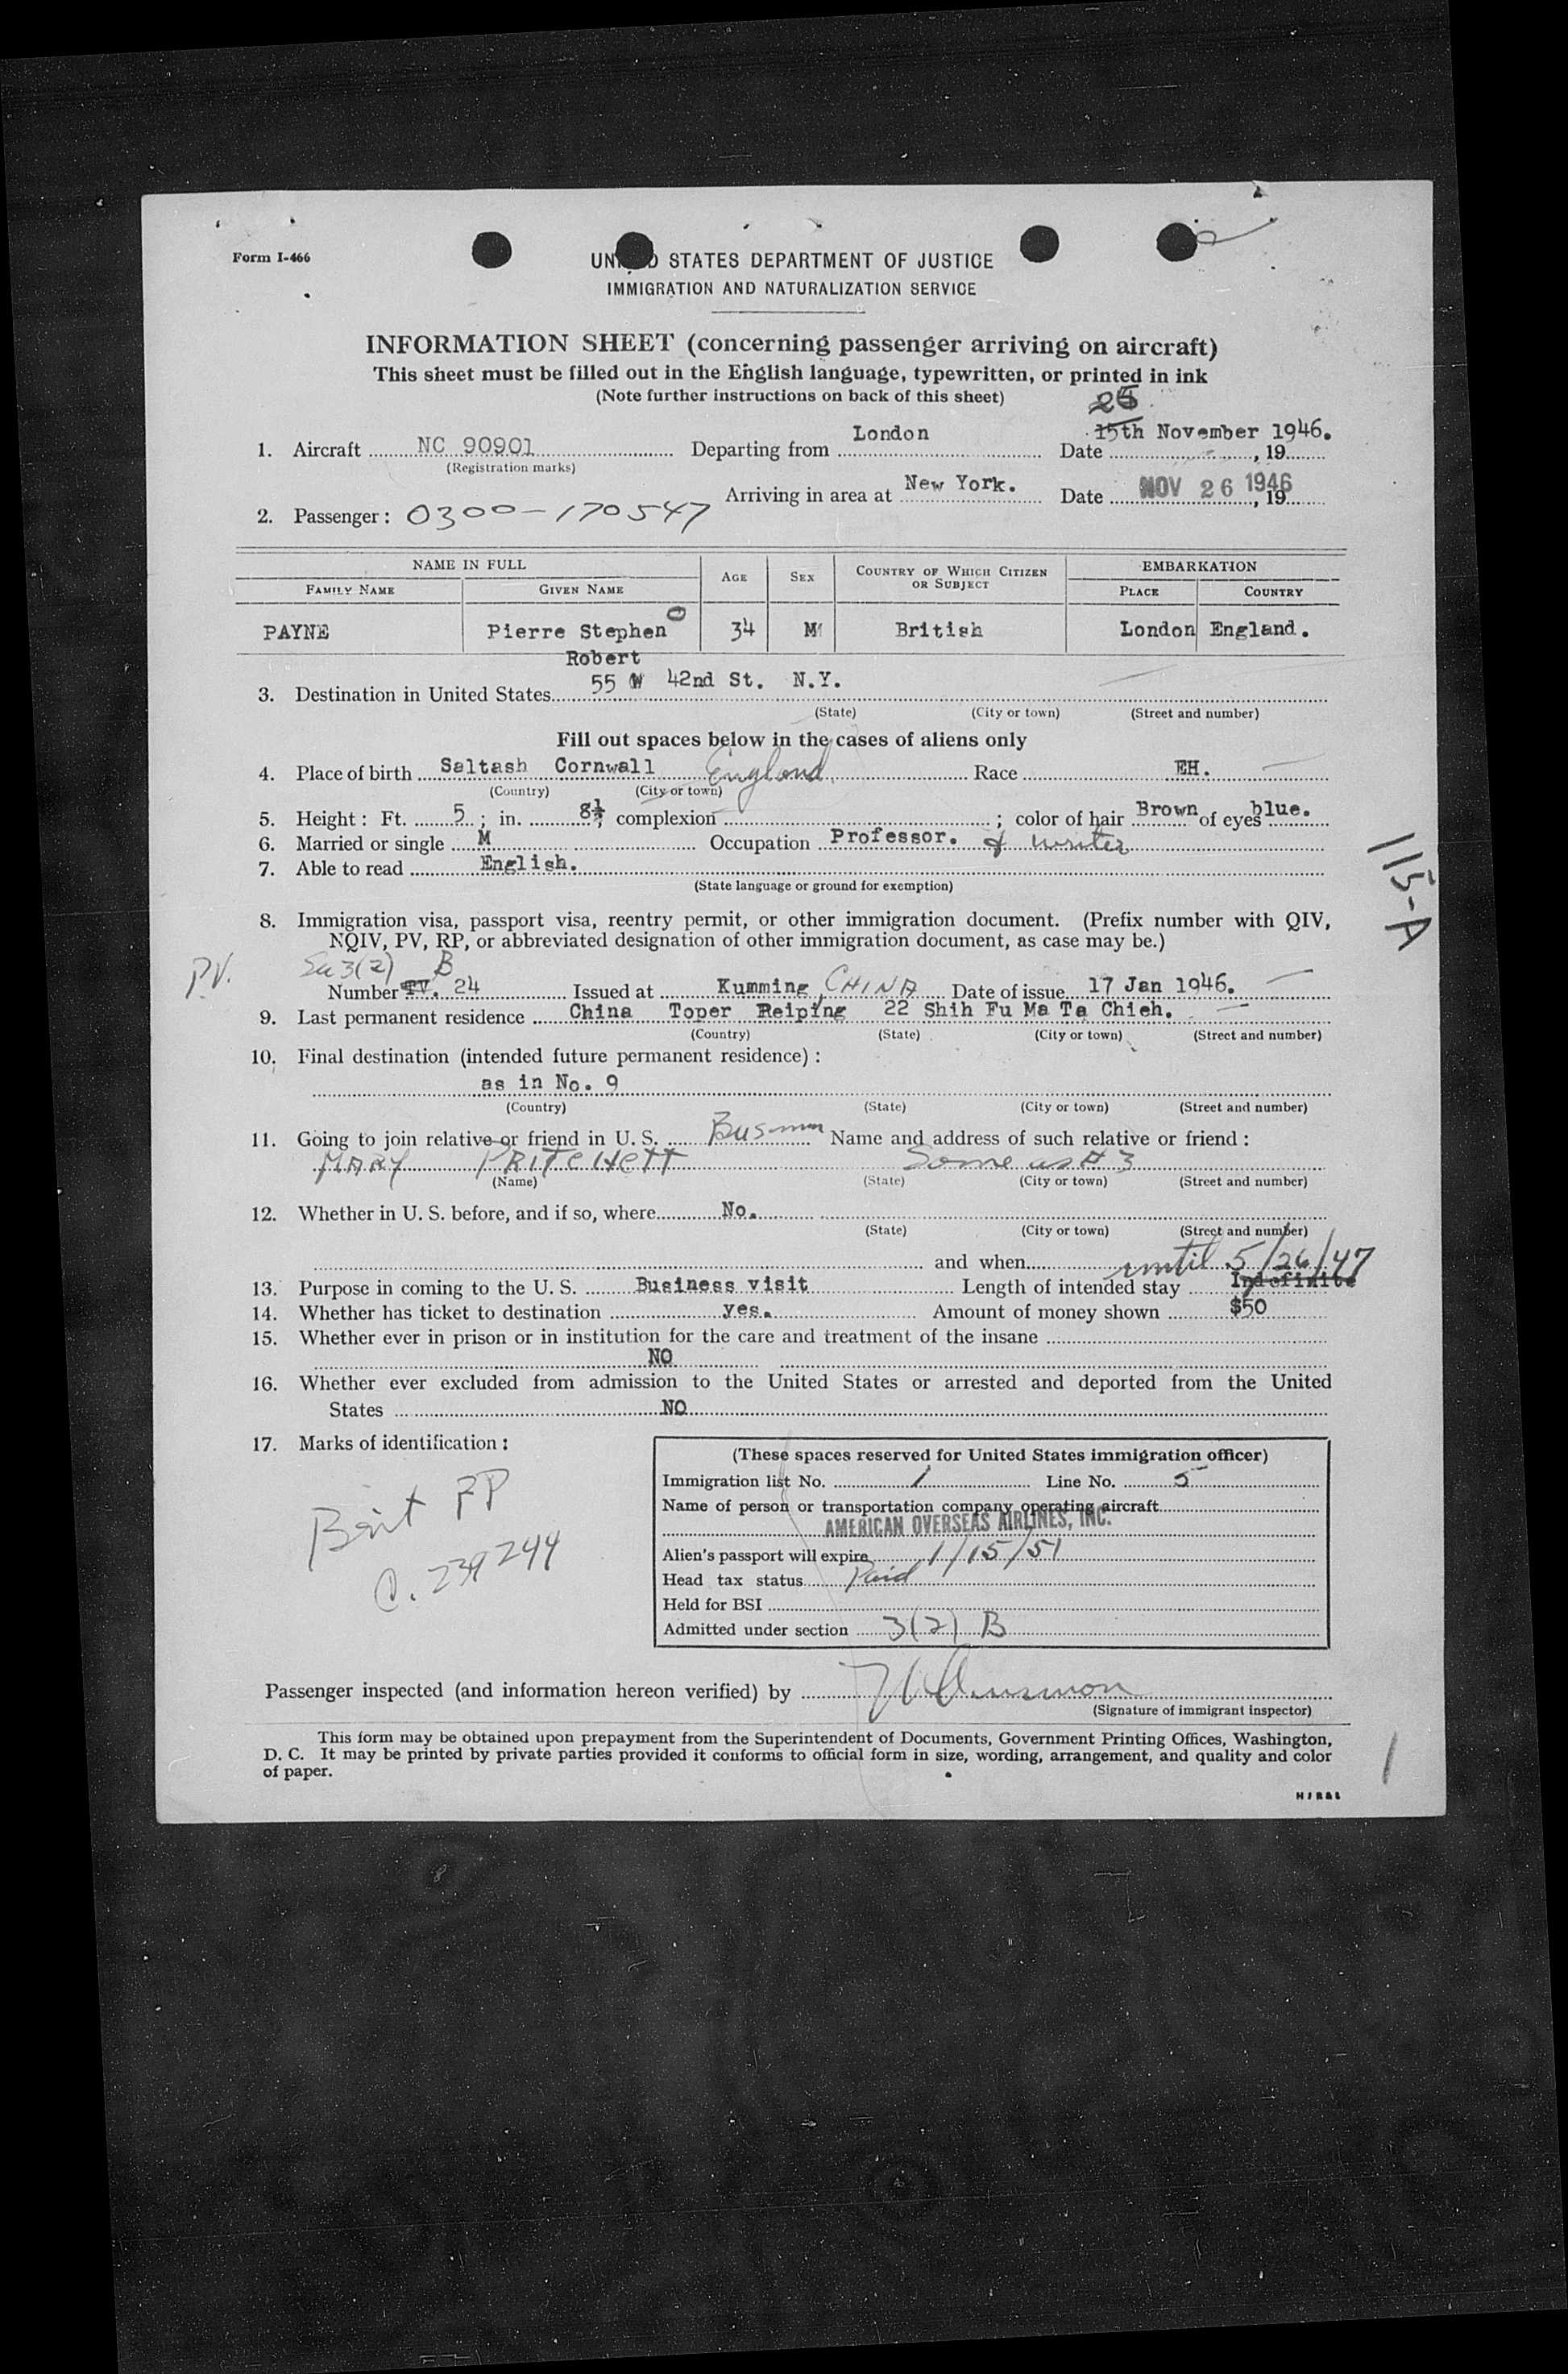 Form I-466
UNITED STATES DEPARTMENT OF JUSTICE
IMMIGRATION AND NATURALIZATION SERVICE
INFORMATION SHEET (concerning passenger arriving on aircraft)
This sheet must be filled out in the English language, typewritten, or printed in ink
(Note further instructions on back of this sheet)
25
1. Aircraft NC 90901 Departing from London Date 15th November 1946. , 19
(Registration marks)
Arriving in area at New York. Date NOV 26 1946 , 19
2. Passenger: 0300-170547
NAME IN FULL AGE SEX COUNTRY OF WHICH CITIZEN OR SUBJECT EMBARKATION
FAMILY NAME GIVEN NAME PLACE COUNTRY
PAYNE Pierre Stephen 34 M British London England.
Robert
3. Destination in United States 55 W 42nd St. N.Y.
(State) (City or town) (Street and number)
Fill out spaces below in the cases of aliens only
4. Place of birth Saltash Cornwall England Race EH.
(Country) (City or town)
5. Height: Ft. 5 ; in. 8½ ; complexion ; color of hair Brown of eyes blue.
6. Married or single M Occupation Professor. & writer
7. Able to read English.
(State language or ground for exemption)
8. Immigration visa, passport visa, reentry permit, or other immigration document. (Prefix number with QIV,
NQIV, PV, RP, or abbreviated designation of other immigration document, as case may be.)
PV. 3(2) B
Number PV. 24 Issued at Kumming, CHINA Date of issue 17 Jan 1946.
9. Last permanent residence China Toper Peiping 22 Shih Fu Ma Ta Chieh.
(Country) (State) (City or town) (Street and number)
10. Final destination (intended future permanent residence):
as in No. 9
(Country) (State) (City or town) (Street and number)
11. Going to join relative or friend in U. S. Busman Name and address of such relative or friend:
MARY PRITCHETT Same as # 3
(Name) (State) (City or town) (Street and number)
12. Whether in U. S. before, and if so, where No.
(State) (City or town) (Street and number)
and when
until 5/26/47
13. Purpose in coming to the U. S. Business visit Length of intended stay Indefinite
14. Whether has ticket to destination yes. Amount of money shown $50
15. Whether ever in prison or in institution for the care and treatment of the insane
NO
16. Whether ever excluded from admission to the United States or arrested and deported from the United
States NO
17. Marks of identification:
Brit PP
C. 239244
(These spaces reserved for United States immigration officer)
Immigration list No. 1 Line No. 5
Name of person or transportation company operating aircraft
AMERICAN OVERSEAS AIRLINES, INC.
Alien's passport will expire 1/15/51
Head tax status Paid
Held for BSI
Admitted under section 3(2) B
Passenger inspected (and information hereon verified) by
(Signature of immigrant inspector)
This form may be obtained upon prepayment from the Superintendent of Documents, Government Printing Offices, Washington,
D. C. It may be printed by private parties provided it conforms to official form in size, wording, arrangement, and quality and color
of paper.
115-A
1